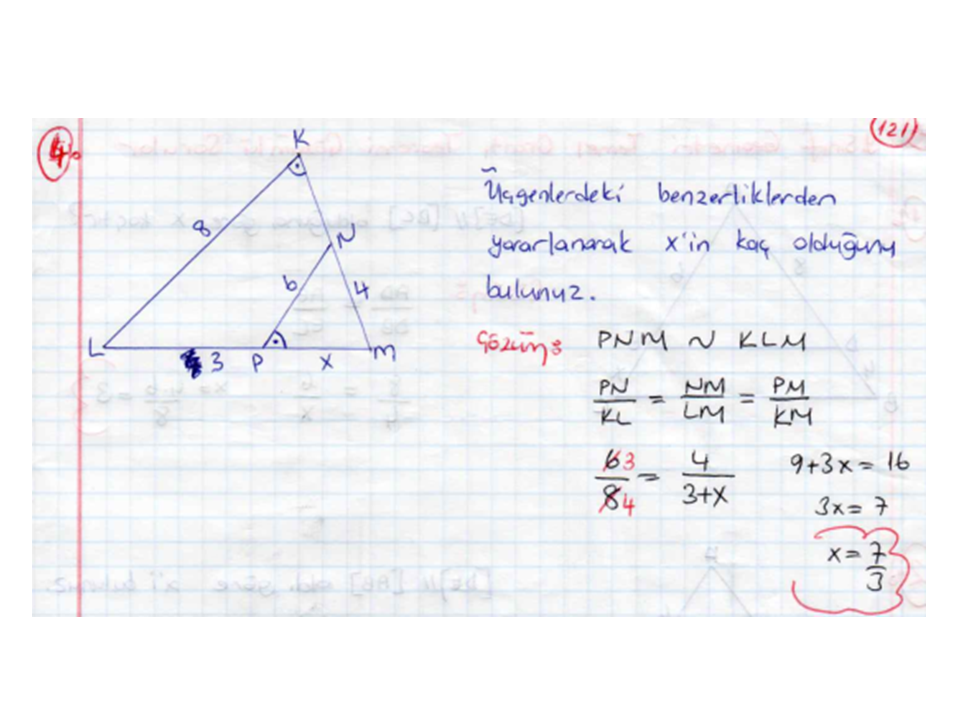 4.
121
K
8
N
6
4
L
3
P
x
M
Üçgenlerdeki benzerliklerden
yararlanarak x'in kaç olduğunu
bulunuz.
Çözüm:
PNM ~ KLM
PN/KL = NM/LM = PM/KM
6 3/8 4 = 4/3+x
9+3x = 16
3x = 7
x = 7/3